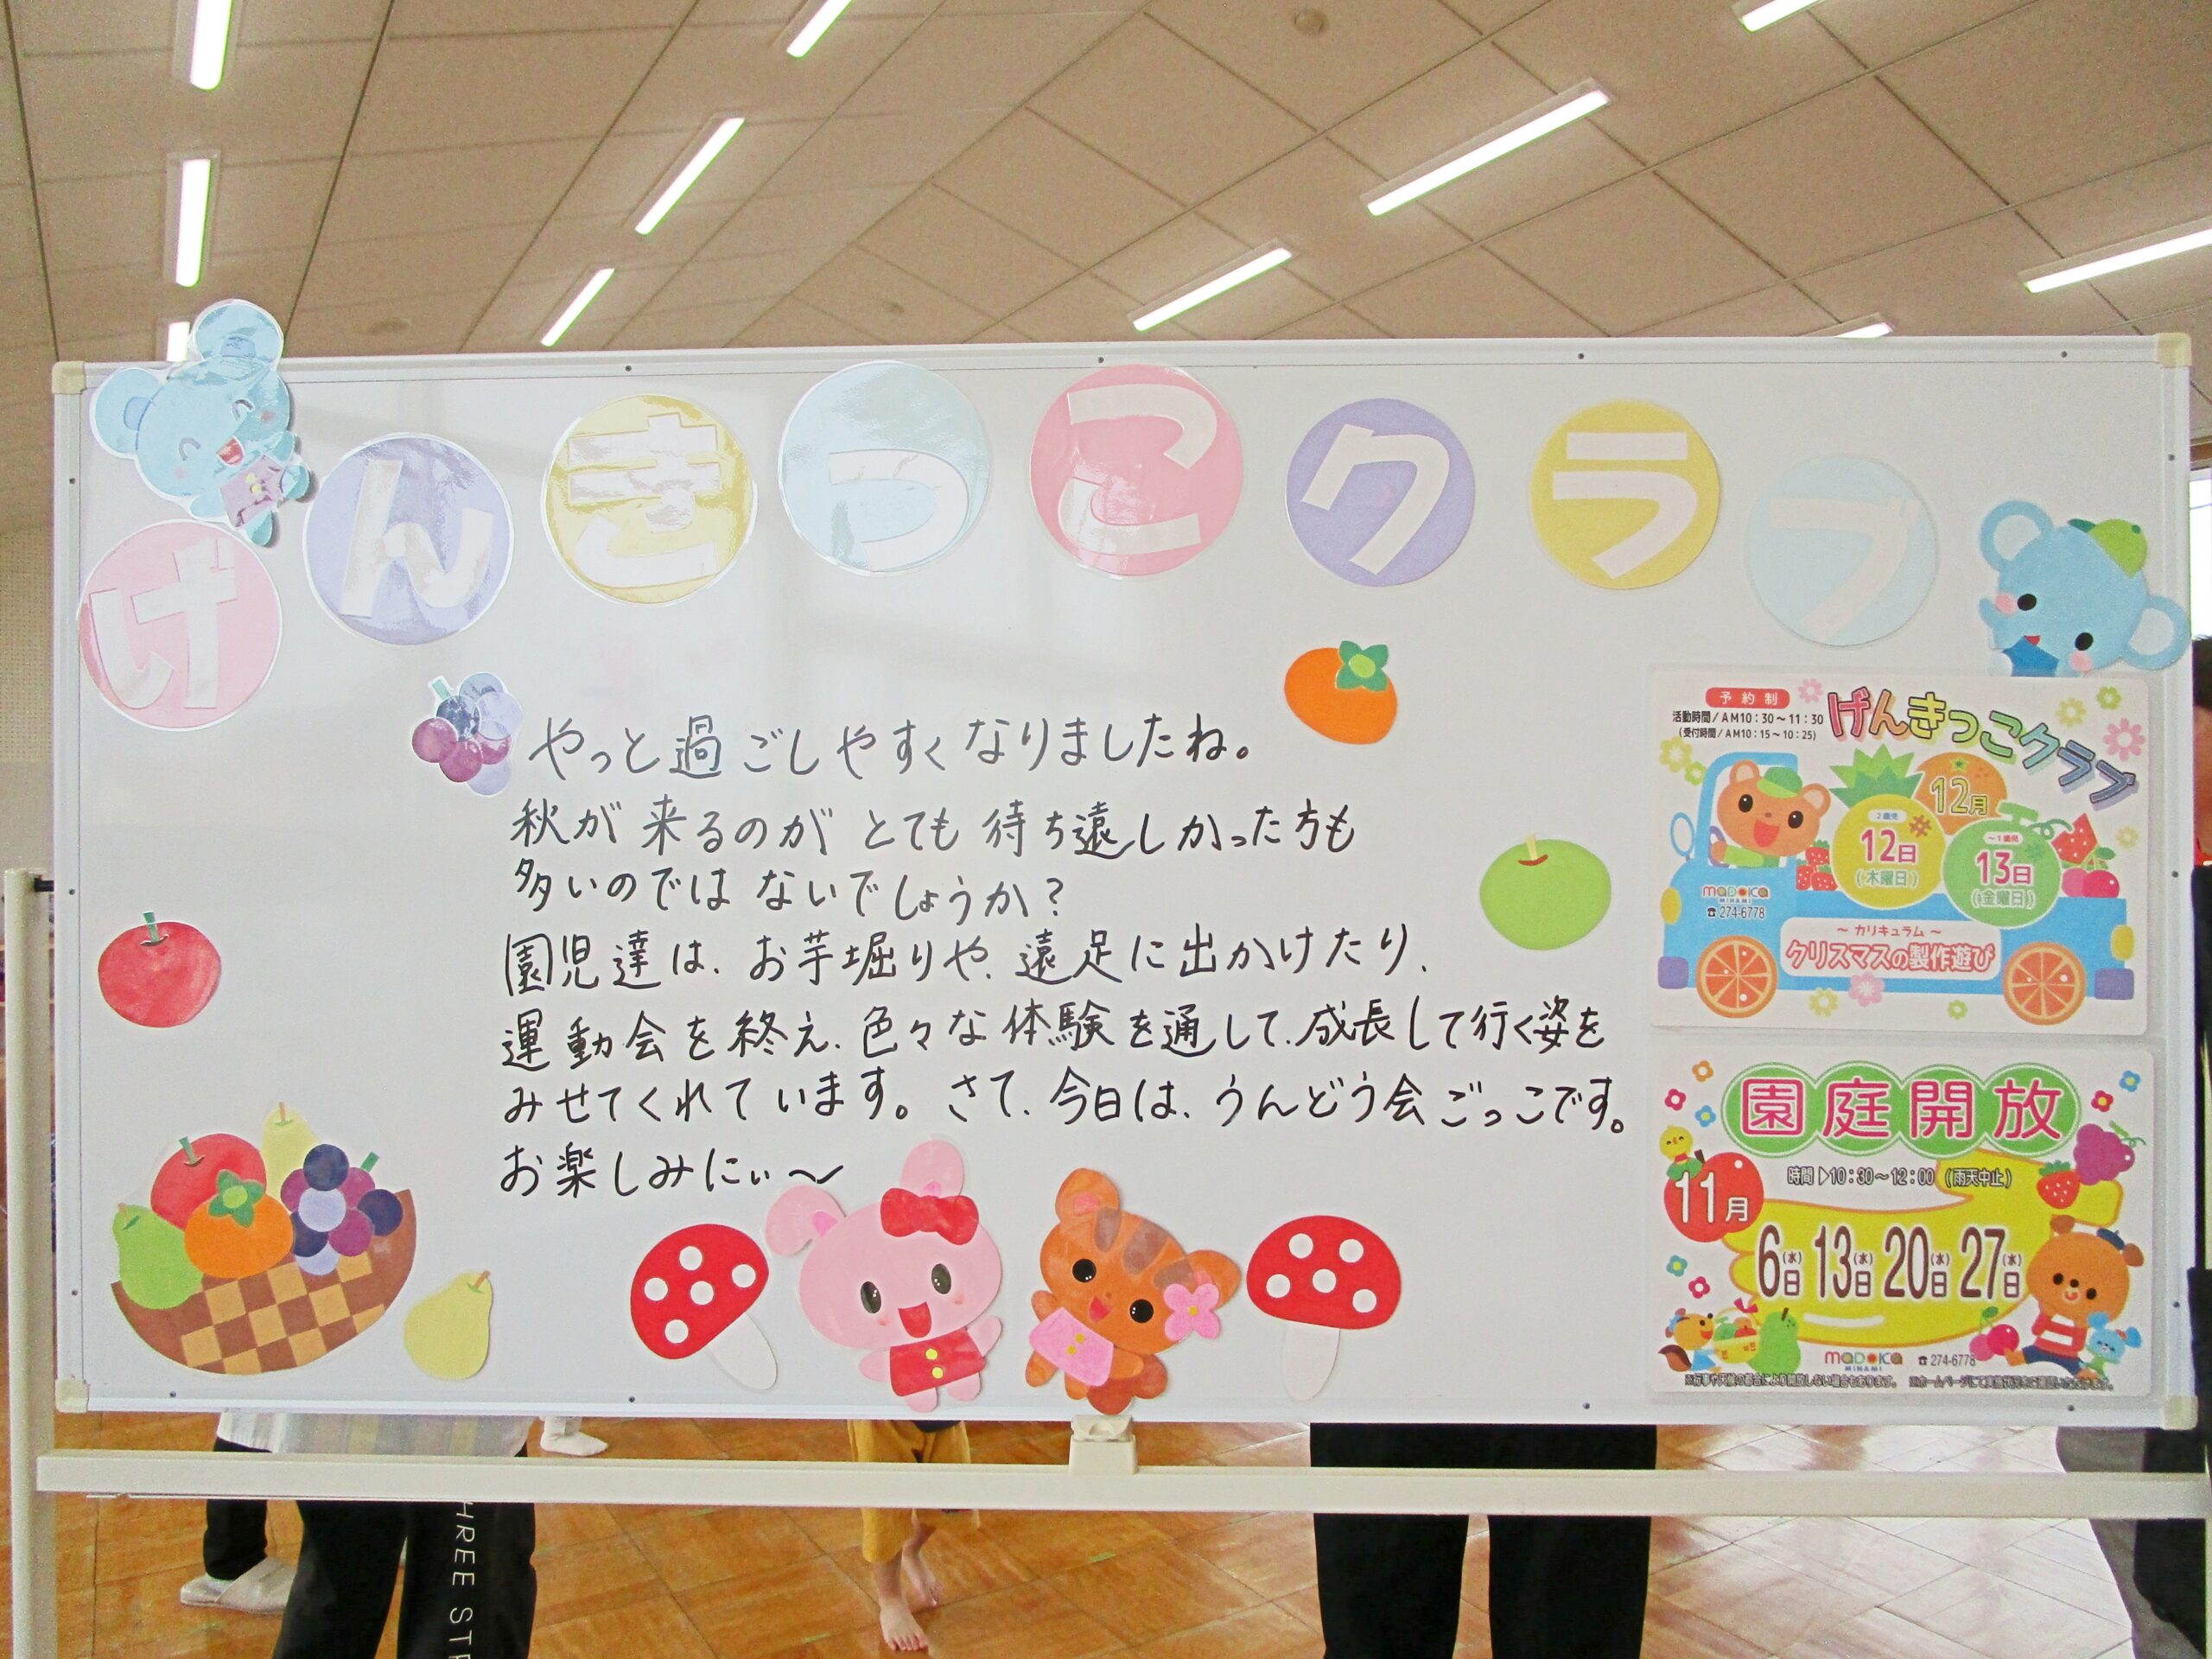 げんきっこクラブ
やっと過ごしやすくなりましたね。
秋が来るのがとても待ち遠しかった方も
多いのではないでしょうか?
園児達は、お芋堀りや、遠足に出かけたり、
運動会を終え、色々な体験を通して、成長して行く姿を
みせてくれています。さて、今日は、うんどう会ごっこです。
お楽しみにぃ〜
予約制
活動時間/AM10:30〜11:30
(受付時間/AM10:15〜10:25)
げんきっこクラブ
12月
2歳児
12日
(木曜日)
〜1歳児
13日
(金曜日)
madoka
MINAMI
☎274-6778
〜カリキュラム〜
クリスマスの製作遊び
園庭開放
時間▶10:30〜12:00 (雨天中止)
11月
6日(水) 13日(水) 20日(水) 27日(水)
madoka
MINAMI
☎274-6778
HREE ST